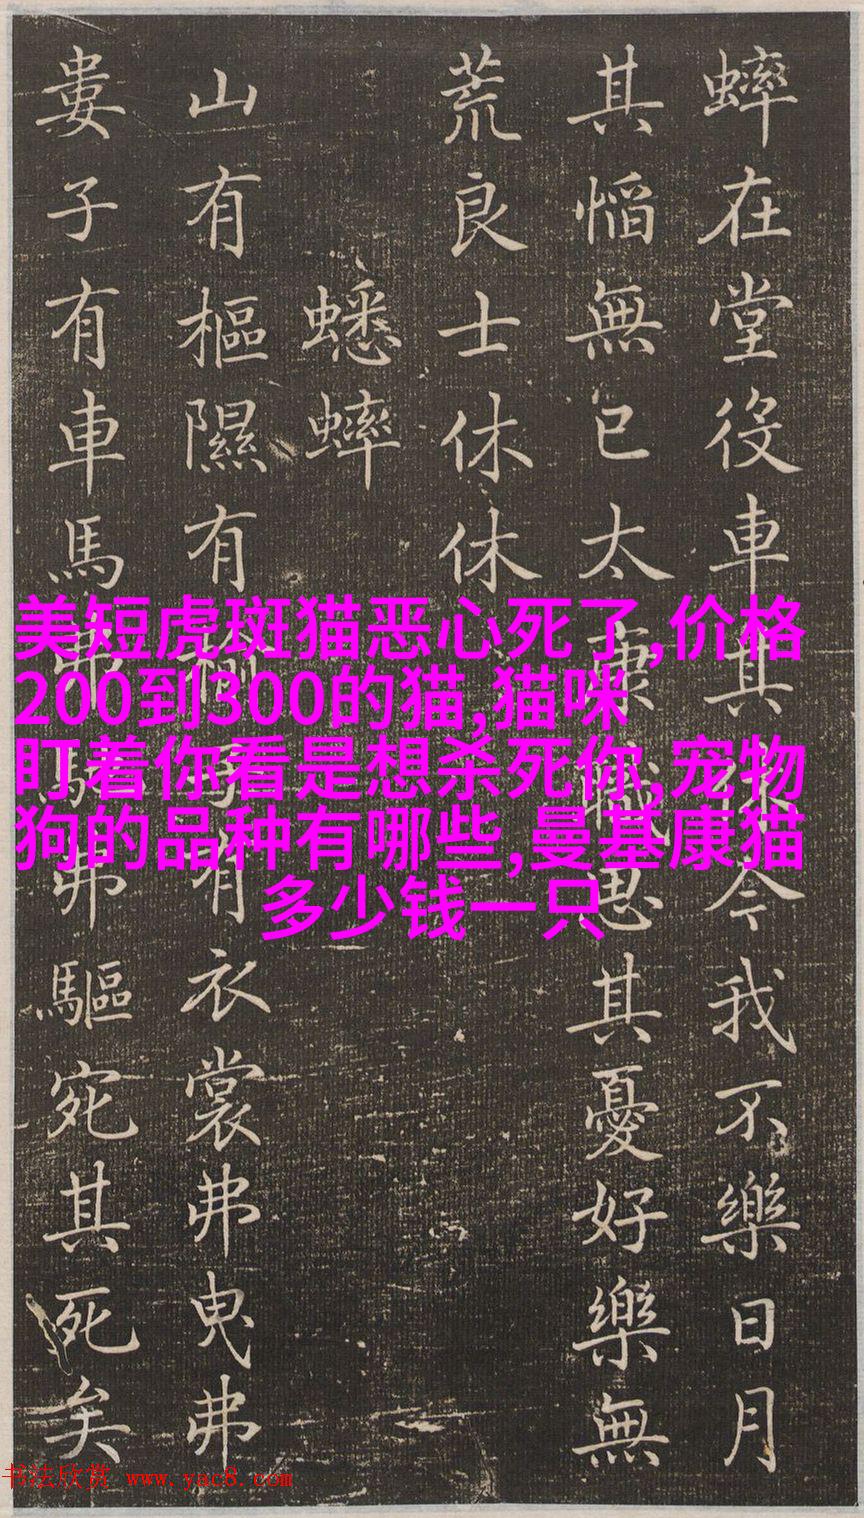 蟀在堂役車其休今我不樂日月
其慆無已太康職思其憂好樂無
荒良士休休
蟋蟀
山有樞隰有榆子有衣裳弗曳弗
婁子有車馬弗馳弗驅宛其死矣
美短虎斑猫恶心死了,价格
200到300的猫,猫咪
盯着你看是想杀死你,宠物
狗的品种有哪些,曼基康猫
多少钱一只
书法欣赏 www.yac8.com